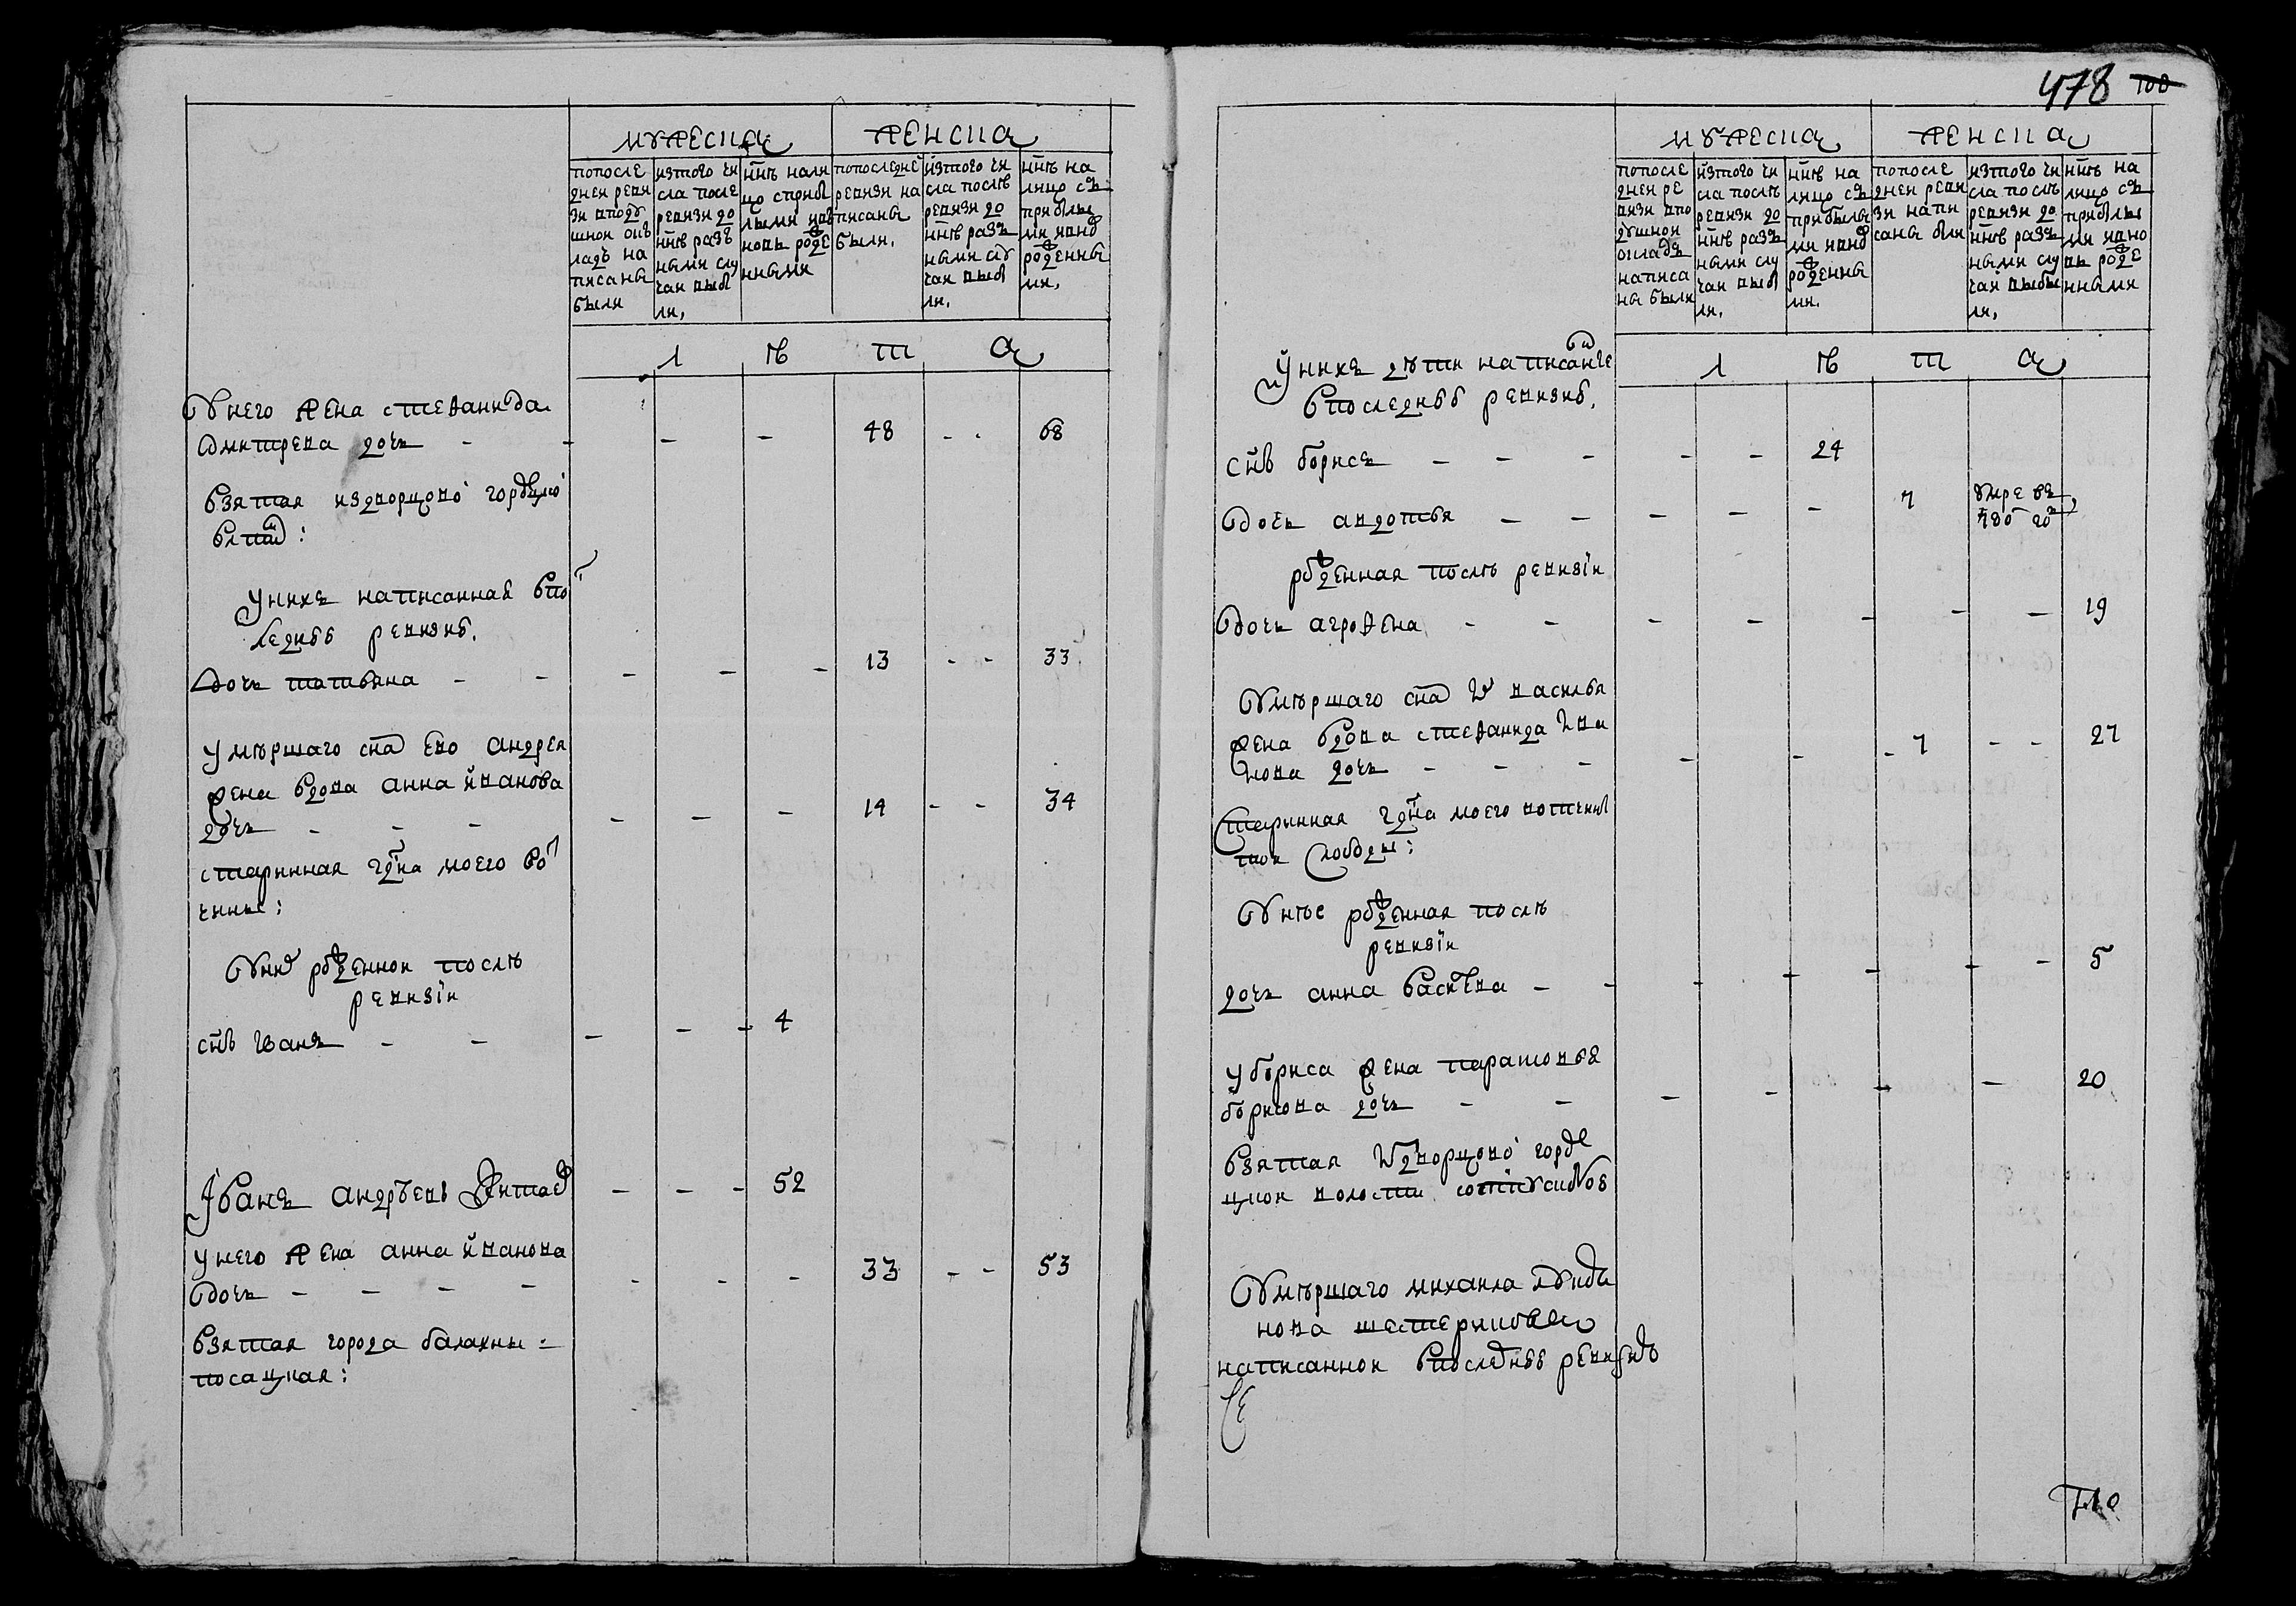 478 100
мужеска женска
попосле
днеи реви
зи вподу
шнои окъ
ладъ на
писаны
были
изтого чи
сла после
ревизи до
ннѣ разъ
ными слу
чаи выбы
ли,
ннѣ нали
цо спрыбы
лыми ивъ
новь рожде
нными
попоследнеи
ревизи на
писаны
были,
изтого чи
сла послѣ
ревизи до
ннѣ разъ
ными слу
чаи выбы
ли,
ннѣ на
лицо съ
прибылы
ми ивно
рожденны
ми,
л ѣ т а
У него жена стефанида
дмитрева дочь - - - - 48 - - 68
взятая издворцово гордецко
влсти:
уних написанная впо
ледней ревизий,
дочь татьяна - - - - - 13 - - 33
умѣршаго сна ево андрея
жена вдова анна иванова
дочь - - - - - - 14 - - 34
старинная чдна моего во
чины:
У нихъ рожденнои послѣ
ревизіи
снъ иванъ - - - - - 4
Иванъ андрѣевъ - - - 52
у него жена анна иванова
дочь - - - - - - - 33 - - 53
взятая города балахны =
посацкая:
мужеска женска
попосле
днеи ре
визи впо
душнои
окладъ
написа
ны были
изтого чи
сла послѣ
ревизи до
ннѣ разъ
ными слу
чаи выбы
ли,
ннѣ на
лицо съ
прибылы
ми ивно
рожденны
ми,
попосле
днеи реви
зи напи
саны были
изтого чи
сла послѣ
ревизи до
ннѣ разъ
ными слу
чаи выбы
ли,
ннѣ на
лицо съ
прибылы
ми ивно
вь рожде
нными
л ѣ т а
У нихъ дѣти написаные
впоследней ревизий,
снъ борисъ - - - - - 24
дочь авдотья - - - - - 7 умре въ
году
рожденная послѣ ревизіи
дочь агрофена - - - - - - - 19
Умѣршаго сна ѿ василья
жена вдова стефанида ива
нова дочь - - - - - - 7 - - 27
старинная чдна моего вотчины
тои слободы:
У нѣе рожденная послѣ
ревизіи
дочь анна васильева - - - - - - - 5
у бориса жена парасковья
борисова дочь - - - - - - 20
взятая ѿдворцово горде
цкои волости
Умѣршаго михаила
нова
написаннои впоследней ревизий